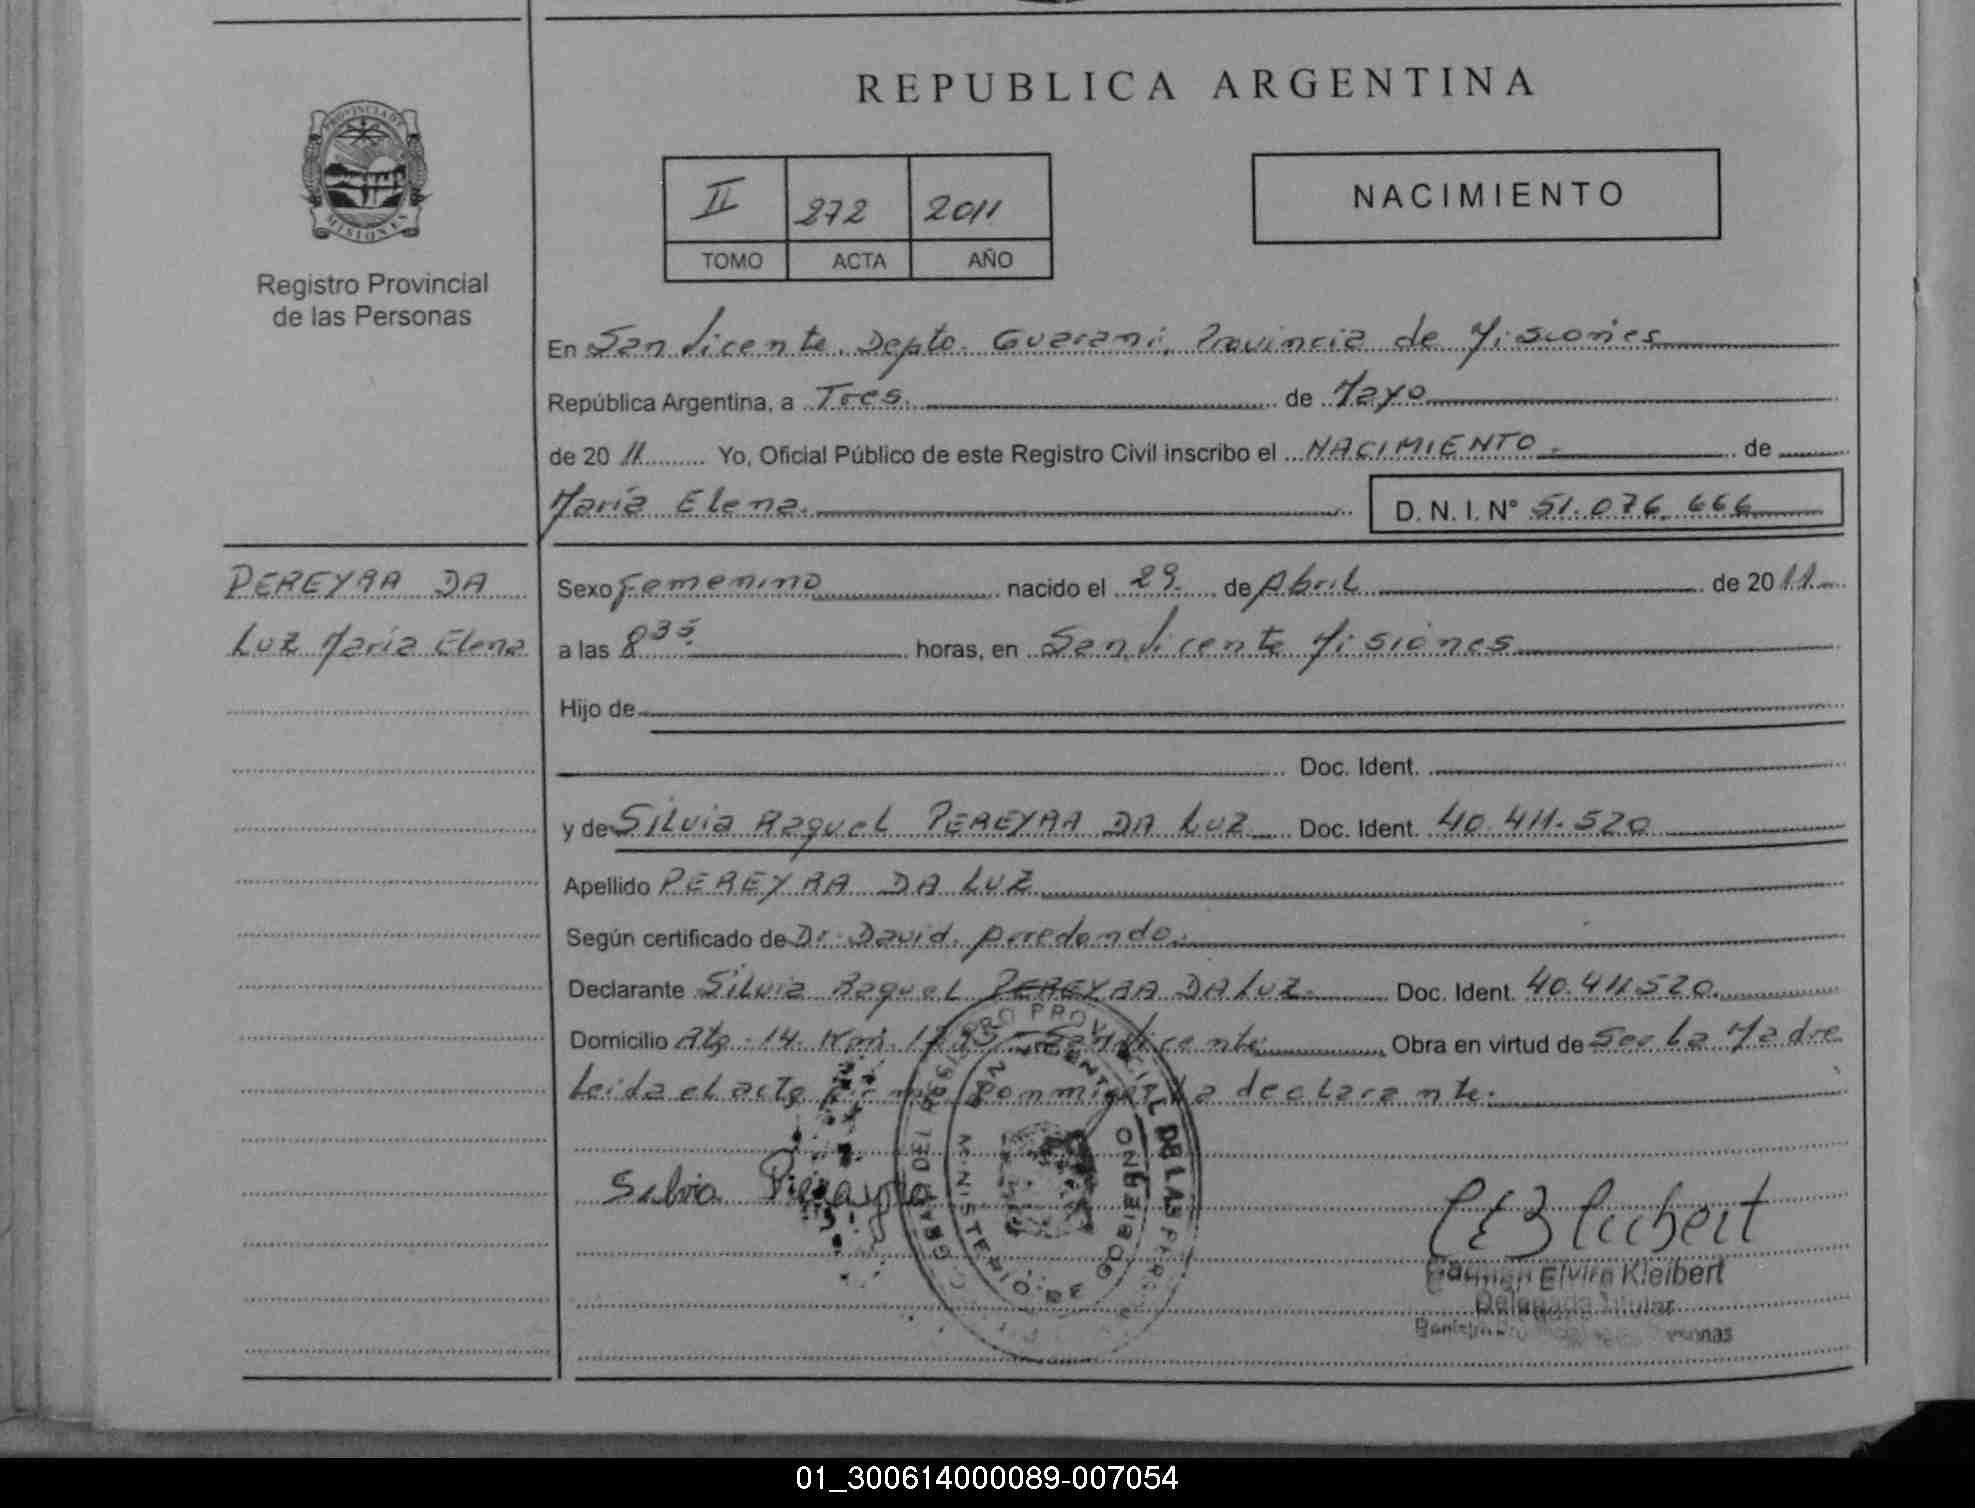 REPUBLICA ARGENTINA
PROVINCIA DE
MISIONES
Registro Provincial
de las Personas
II 272 2011
TOMO ACTA AÑO
NACIMIENTO
En San Vicente. Depto. Guaraní. Provincia de Misiones
República Argentina, a Tres. de Mayo
de 20 11 Yo, Oficial Público de este Registro Civil inscribo el NACIMIENTO. de
María Elena. D. N. I. N° 51.076.666
PEREYRA DA
Luz María Elena
Sexo Femenino nacido el 29. de Abril de 20 11
a las 8 35 horas, en San Vicente Misiones
Hijo de
Doc. Ident.
y de Silvia Raquel PEREYRA DA LUZ Doc. Ident. 40.411.520
Apellido PEREYRA DA LUZ
Según certificado de Dr. David. Arredondo.
Declarante Silvia Raquel PEREYRA DA LUZ Doc. Ident. 40.411.520.
Domicilio Rta. 14. Km. San Vicente Obra en virtud de Ser La Madre
Leída el acta firma conmigo La declarante.
Silvia
MINISTERIO DE GOBIERNO
CEKleibert
Carmen Elvira Kleibert
Delegada Titular
01_300614000089-007054